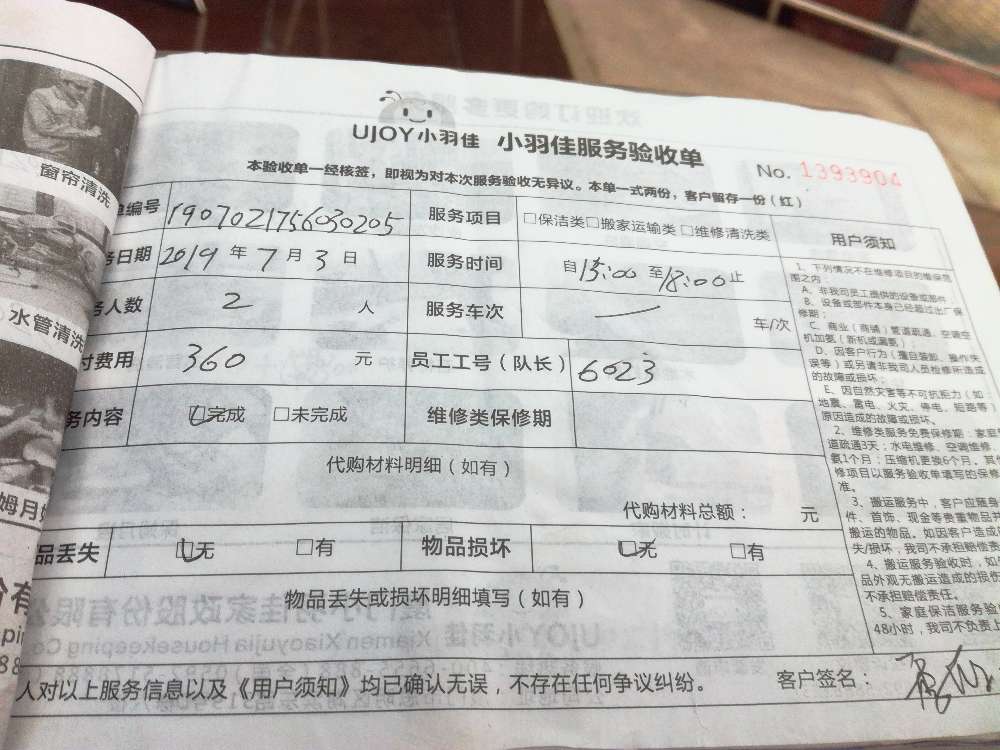 UJOY小羽佳 小羽佳服务验收单
No. 1393904
本验收单一经核签，即视为对本次服务验收无异议。本单一式两份，客户留存一份（红）
窗帘清洗
水管清洗
单编号 1907021756030205 服务项目 □保洁类□搬家运输类 □维修清洗类 用户须知
务日期 2019 年 7 月 3 日 服务时间 自 15:00 至 18:00 止
务人数 2 人 服务车次 — 车/次
付费用 360 元 员工工号（队长） 6023
务内容 □完成 □未完成 维修类保修期
代购材料明细（如有）
代购材料总额： 元
品丢失 □无 □有 物品损坏 □无 □有
物品丢失或损坏明细填写（如有）
人对以上服务信息以及《用户须知》均已确认无误，不存在任何争议纠纷。 客户签名：
1、下列情况不在维修项目的维保范
围之内
A、非我司员工提供的设备或部件；
B、设备或部件本身已经超过出厂保
修期；
C、商业（商铺）管道疏通、空调空
机加氨（新机或漏氨）；
D、因客户行为（擅自装卸、操作失
误等）或另请非我司人员检修所造成
的故障或损坏；
E、因自然灾害等不可抗拒力（如：
地震、雷电、火灾、停电、短路等）
原因造成的故障或损坏。
2、维修类服务免费保修期：家庭
道疏通3天；水电维修、空调维修
氨1个月；压缩机更换6个月。其
修项目以服务验收单填写的保修
准。
3、搬运服务中，客户应随身
件、首饰、现金等贵重物品并
搬运的物品。如因客户造成
失/损坏，我司不承担赔偿责
4、搬运服务验收时，如
品外观无搬运造成的损伤
不承担赔偿责任。
5、家庭保洁服务验
48小时，我司不负责上